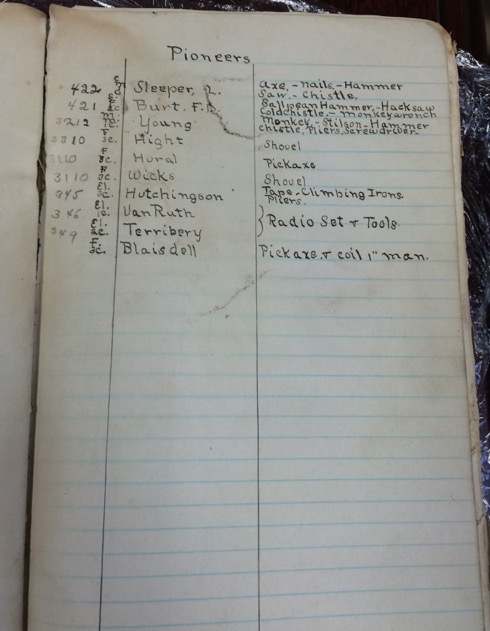 Pioneers
422 Sleeper, L. Axe, - Nails - Hammer
Saw. - Chistle.
421 Burt. F.L. BallpeanHammer, - Hacksaw
Coldchistle, - monkeywrench
3212 Young Monkey, - Stilson - Hammer
chistle, Pliers, Screwdriver
3310 sc. Hight Shovel
3110 F sc. Hural Pickaxe
3110 F sc. Wicks Shovel
345 El. sc. Hutchingson Tape - Climbing Irons
Pliers.
346 El. sc. VanRuth
Radio Set & Tools.
349 El. sc. Terribery
F. sc. Blaisdell Pickaxe, & coil 1" man.